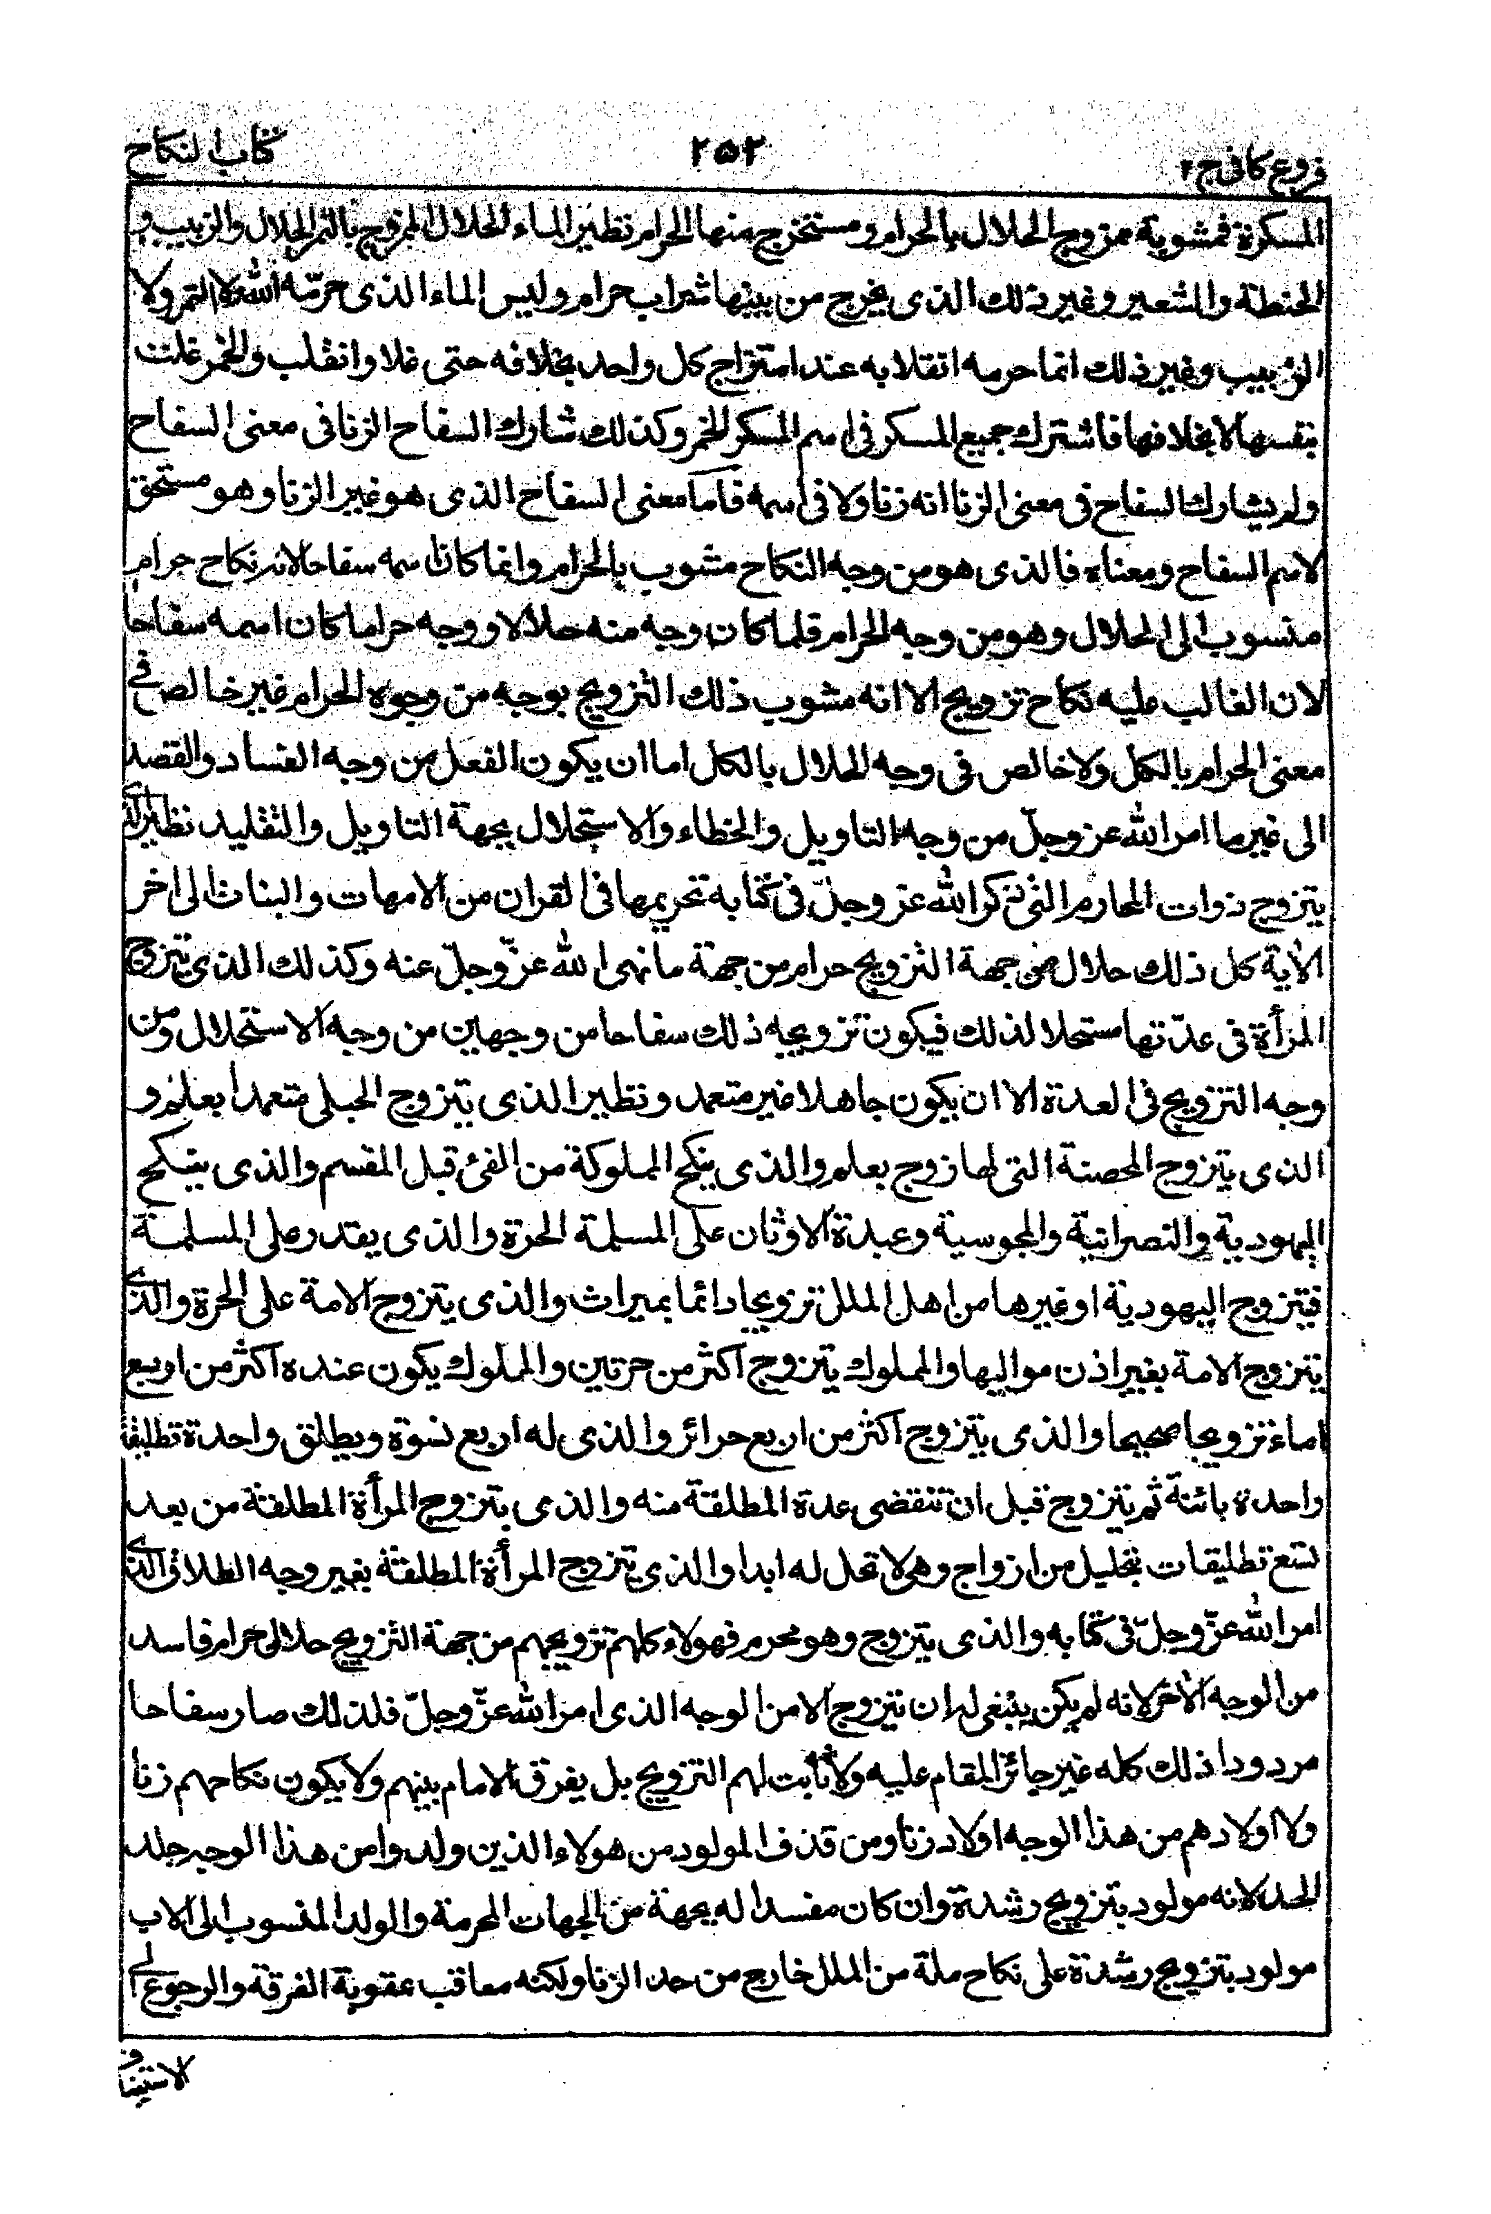 فروع كافى ج ٢
٢٥٢
كتاب النكاح
المسكرة فمشوبة ممزوج الحلال بالحرام ومستخرج منها الحرام نظير الماء الحلال الممزوج بالتمر الحلال والزبيب و
الحنطة والشعير وغير ذلك الذى يخرج من بينها شراب حرام وليس الماء الذى حرّمه الله ولا التمر ولا
الزبيب وغير ذلك انما حرمه انقلابه عند امتزاج كل واحد بخلافه حتى غلا وانقلب والخمر غلت
بنفسها لا بخلافها فاشترك جميع المسكر فى اسم المسكر الخمر وكذلك شارك السفاح الزنا فى معنى السفاح
ولم يشارك السفاح فى معنى الزنا انه زنا ولا فى اسمه فاما معنى السفاح الذى هو غير الزنا وهو مستحق
لاسم السفاح ومعناه فالذى هو من وجه النكاح مشوب بالحرام وانما كان اسمه سفاحا لانه نكاح حرام
منسوب الى الحلال وهو من وجه الحرام فلما كان وجه منه حلالا ووجه حراما كان اسمه سفاحا
لان الغالب عليه نكاح تزويج الا انه مشوب ذلك التزويج بوجه من وجوه الحرام غير خالص فى
معنى الحرام بالكل ولا خالص فى وجه الحلال بالكل اما ان يكون الفعل من وجه الفساد والقصد
الى غير ما امر الله عز وجلّ من وجه التاويل والخطاء والاستحلال بجهة التاويل والتقليد نظير الذى
يتزوج ذوات المحارم التى ذكر الله عز وجلّ فى كتابه تحريمها فى القران من الامهات والبنات الى اخر
الاية كل ذلك حلال من جهة التزويج حرام من جهة ما نهى الله عزّ وجلّ عنه وكذلك الذى يتزوج
المرأة فى عدّتها مستحلا لذلك فيكون تزويجه ذلك سفاحا من وجهين من وجه الاستحلال ومن
وجه التزويج فى العدة الا ان يكون جاهلا غير متعمد ونظير الذى يتزوج الحبلى متعمدا بعلم و
الذى يتزوج المحصنة التى لها زوج بعلم والذى ينكح المملوكة من الفئ قبل المقسم والذى ينكح
اليهودية والنصرانية والمجوسية وعبدة الاوثان على المسلمة الحرة والذى يقدر على المسلمة
فيتزوج اليهودية او غيرها من اهل الملل تزويجا دائما بميراث والذى يتزوج الامة على الحرة والذى
يتزوج الامة بغير اذن مواليها والمملوك يتزوج اكثر من حرتين والمملوك يكون عنده اكثر من اربع
اماء تزويجا صحيحا والذى يتزوج اكثر من اربع حرائر والذى له اربع نسوة ويطلق واحدة تطليقة
واحدة بائنة ثم يتزوج قبل ان تنقضى عدة المطلقة منه والذى يتزوج المرأة المطلقة من بعد
تسع تطليقات بتحليل من ازواج وهى لا تحل له ابدا والذى يتزوج المرأة المطلقة بغير وجه الطلاق الذى
امر الله عزّ وجلّ فى كتابه والذى يتزوج وهو محرم فهولاء كلهم تزويجهم من جهة التزويج حلال حرام فاسد
من الوجه الاخر لانه لم يكن ينبغى له ان يتزوج الا من الوجه الذى امر الله عزّ وجلّ فلذلك صار سفاحا
مردودا ذلك كله غير جائز المقام عليه ولا ثابت لهم التزويج بل يفرق الامام بينهم ولا يكون نكاحهم زنا
ولا اولادهم من هذا الوجه اولاد زنا ومن قذف المولود من هولاء الذين ولدوا من هذا الوجه جلد
الحد لانه مولود بتزويج رشدة وان كان مفسدا له بجهة من الجهات المحرمة والولد المنسوب الى الاب
مولود بتزويج رشدة على نكاح ملة من الملل خارج من حد الزنا ولكنه معاقب عقوبة الفرقة والرجوع الى
الاستيناف